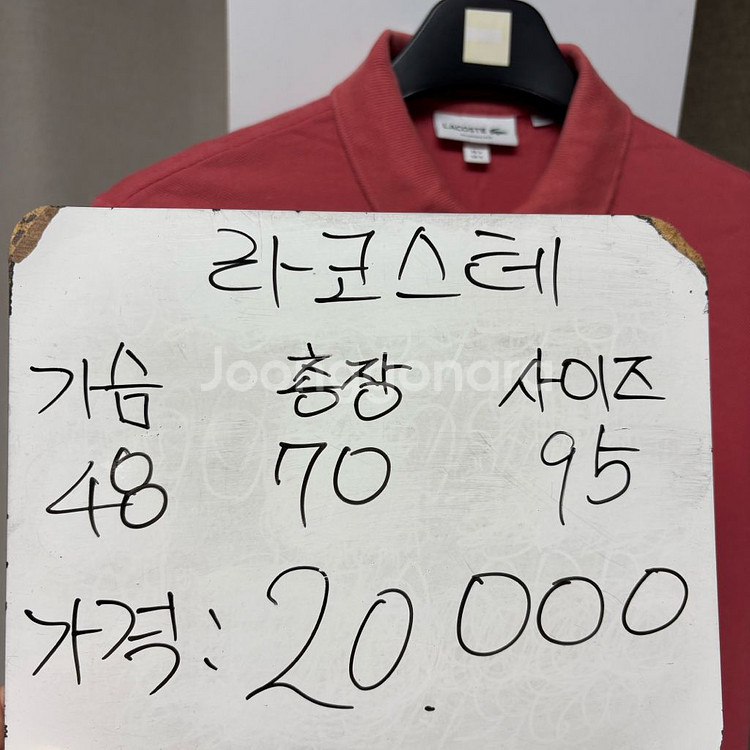 LACOSTE
라코스테
가슴 총장 사이즈
48 70 95
가격: 20.000